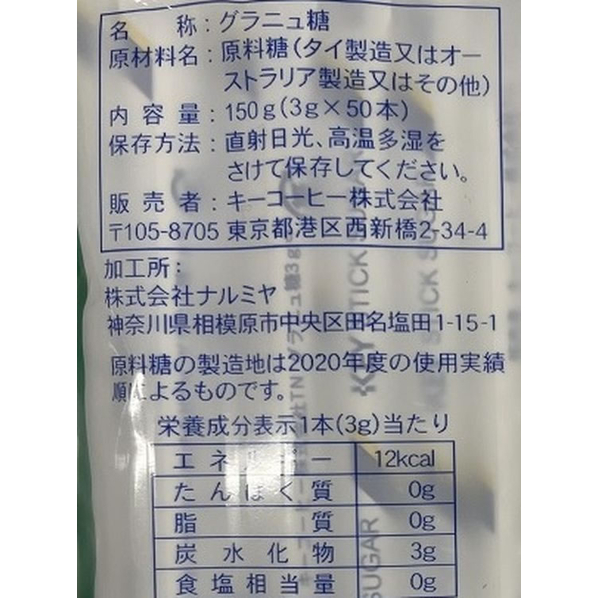 名 称：グラニュ糖
原材料名：原料糖（タイ製造又はオー
ストラリア製造又はその他）
内容量：150g（3g×50本）
保存方法：直射日光、高温多湿を
さけて保存してください。
販売者：キーコーヒー株式会社
〒105-8705 東京都港区西新橋2-34-4
加工所：
株式会社ナルミヤ
神奈川県相模原市中央区田名塩田1-15-1
原料糖の製造地は2020年度の使用実績
順によるものです。
栄養成分表示1本（3g）当たり
エネルギー 12kcal
たんぱく質 0g
脂質 0g
炭水化物 3g
食塩相当量 0g
STICK SUGAR
SUGAR